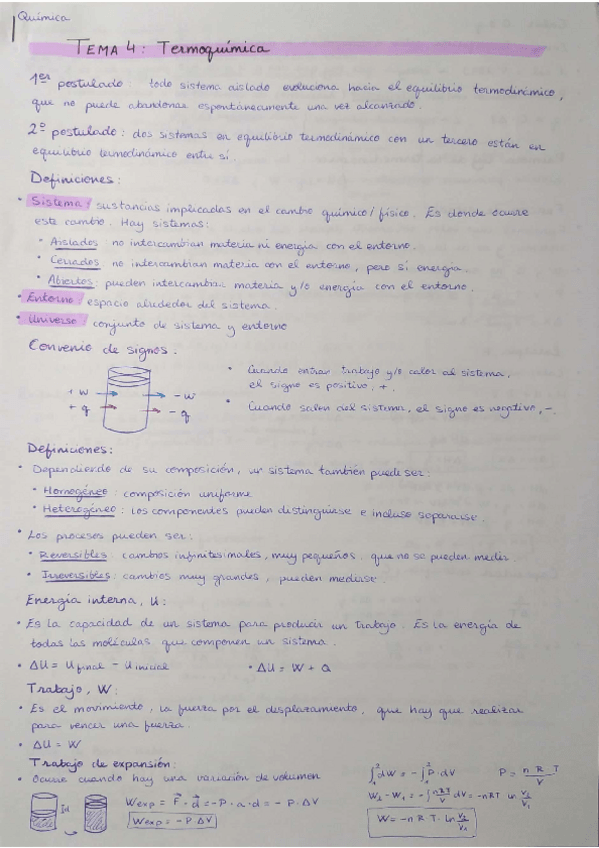 Química
TEMA 4: Termoquímica
1er postulado: todo sistema aislado evoluciona hacia el equilibrio termodinámico,
que no puede abandonar espontáneamente una vez alcanzado.
2º postulado: dos sistemas en equilibrio termodinámico con un tercero están en
equilibrio termodinámico entre sí.
Definiciones:
• Sistema / sustancias implicadas en el cambio químico/físico. Es donde ocurre
este cambio. Hay sistemas:
• Aislados: no intercambian materia ni energía con el entorno.
• Cerrados: no intercambian materia con el entorno, pero sí energía.
• Abiertos: pueden intercambiar materia y/o energía con el entorno.
• Entorno / espacio alrededor del sistema.
• Universo / conjunto de sistema y entorno
Convenio de signos:
+ w
- w
+ q
- q
• Cuando entran trabajo y/o calor al sistema,
el signo es positivo, +.
• Cuando salen del sistema, el signo es negativo, -.
Definiciones:
• Dependiendo de su composición, un sistema también puede ser:
• Homogéneo: composición uniforme
• Heterogéneo: los componentes pueden distinguirse e incluso separarse.
• Los procesos pueden ser:
• Reversibles: cambios infinitesimales, muy pequeños que no se pueden medir.
• Irreversibles: cambios muy grandes, pueden medirse
Energía interna, U:
• Es la capacidad de un sistema para producir un trabajo. Es la energía de
todas las moléculas que componen un sistema.
• ΔU = U final - U inicial
• ΔU = W + Q
Trabajo, W:
• Es el movimiento, la fuerza por el desplazamiento, que hay que realizar
para vencer una fuerza.
• ΔU = W
Trabajo de expansión:
• Ocurre cuando hay una variación de volumen
Wexp = F · d = -P · a · d = - P · ΔV
Wexp = - P · ΔV
∫₁² dW = - ∫₁² P · dV
P = n R T / V
W₂ - W₁ = - ∫ nRT/V dV = -nRT ln V₂/V₁
W = -n R T · ln V₂/V₁